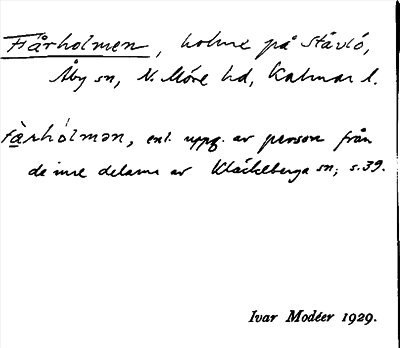 Fårholmen, holme på Stävlö,
Åby sn, N. Möre hd, Kalmar l.
fàrhólmən, enl. uppg. av person från
de inre delarna av Kläckeberga sn; s. 39.
Ivar Modéer 1929.